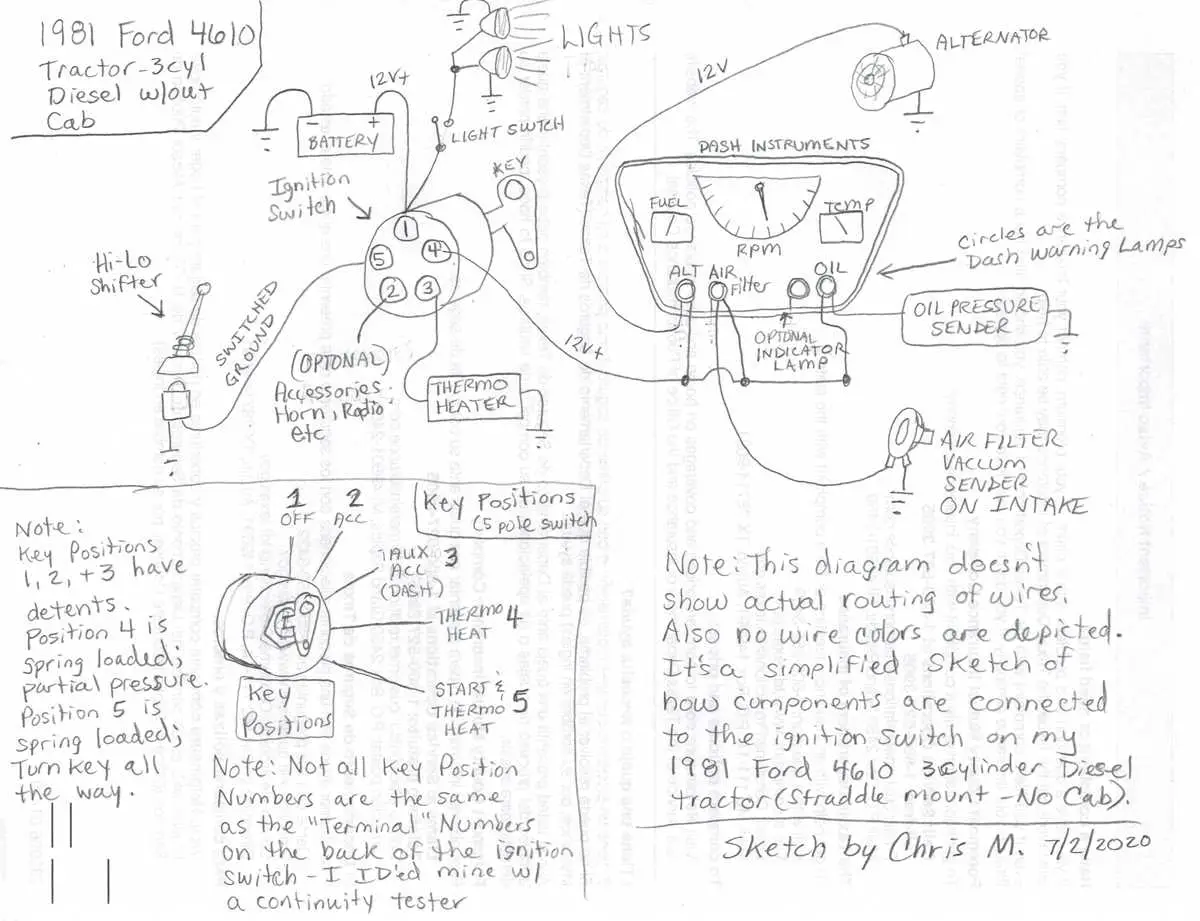 1981 Ford 4610
Tractor-3cyl
Diesel w/out
Cab
LIGHTS
12V+
- +
BATTERY
LIGHT SWTCH
KEY
Ignition
Switch
1
4
5
2
3
Hi-Lo
Shifter
SWITCHED
GROUND
(OPTIONAL)
Accessories
Horn, Radio
etc
THERMO
HEATER
12V+
12V
ALTERNATOR
DASH INSTRUMENTS
FUEL
Temp
RPM
ALT
AIR
Filter
OIL
OPTIONAL
INDICATOR
LAMP
Circles are the
Dash Warning Lamps
OIL PRESSURE
SENDER
AIR FILTER
VACCUM
SENDER
ON INTAKE
Note:
Key Positions
1, 2, + 3 have
detents.
Position 4 is
spring loaded;
partial pressure.
Position 5 is
spring loaded;
Turn key all
the way.
Key Positions
(5 pole switch
1
OFF
2
ACC
AUX 3
ACC
(DASH)
THERMO 4
HEAT
START &
THERMO 5
HEAT
Key
Positions
Note: Not all Key Position
Numbers are the same
as the "Terminal" Numbers
on the back of the ignition
switch - I ID'ed mine w/
a continuity tester
Note: This diagram doesn't
show actual routing of wires.
Also no wire colors are depicted.
It's a simplified sketch of
how components are connected
to the ignition switch on my
1981 Ford 4610 3cylinder Diesel
tractor (straddle mount - No Cab).
Sketch by Chris M. 7/2/2020